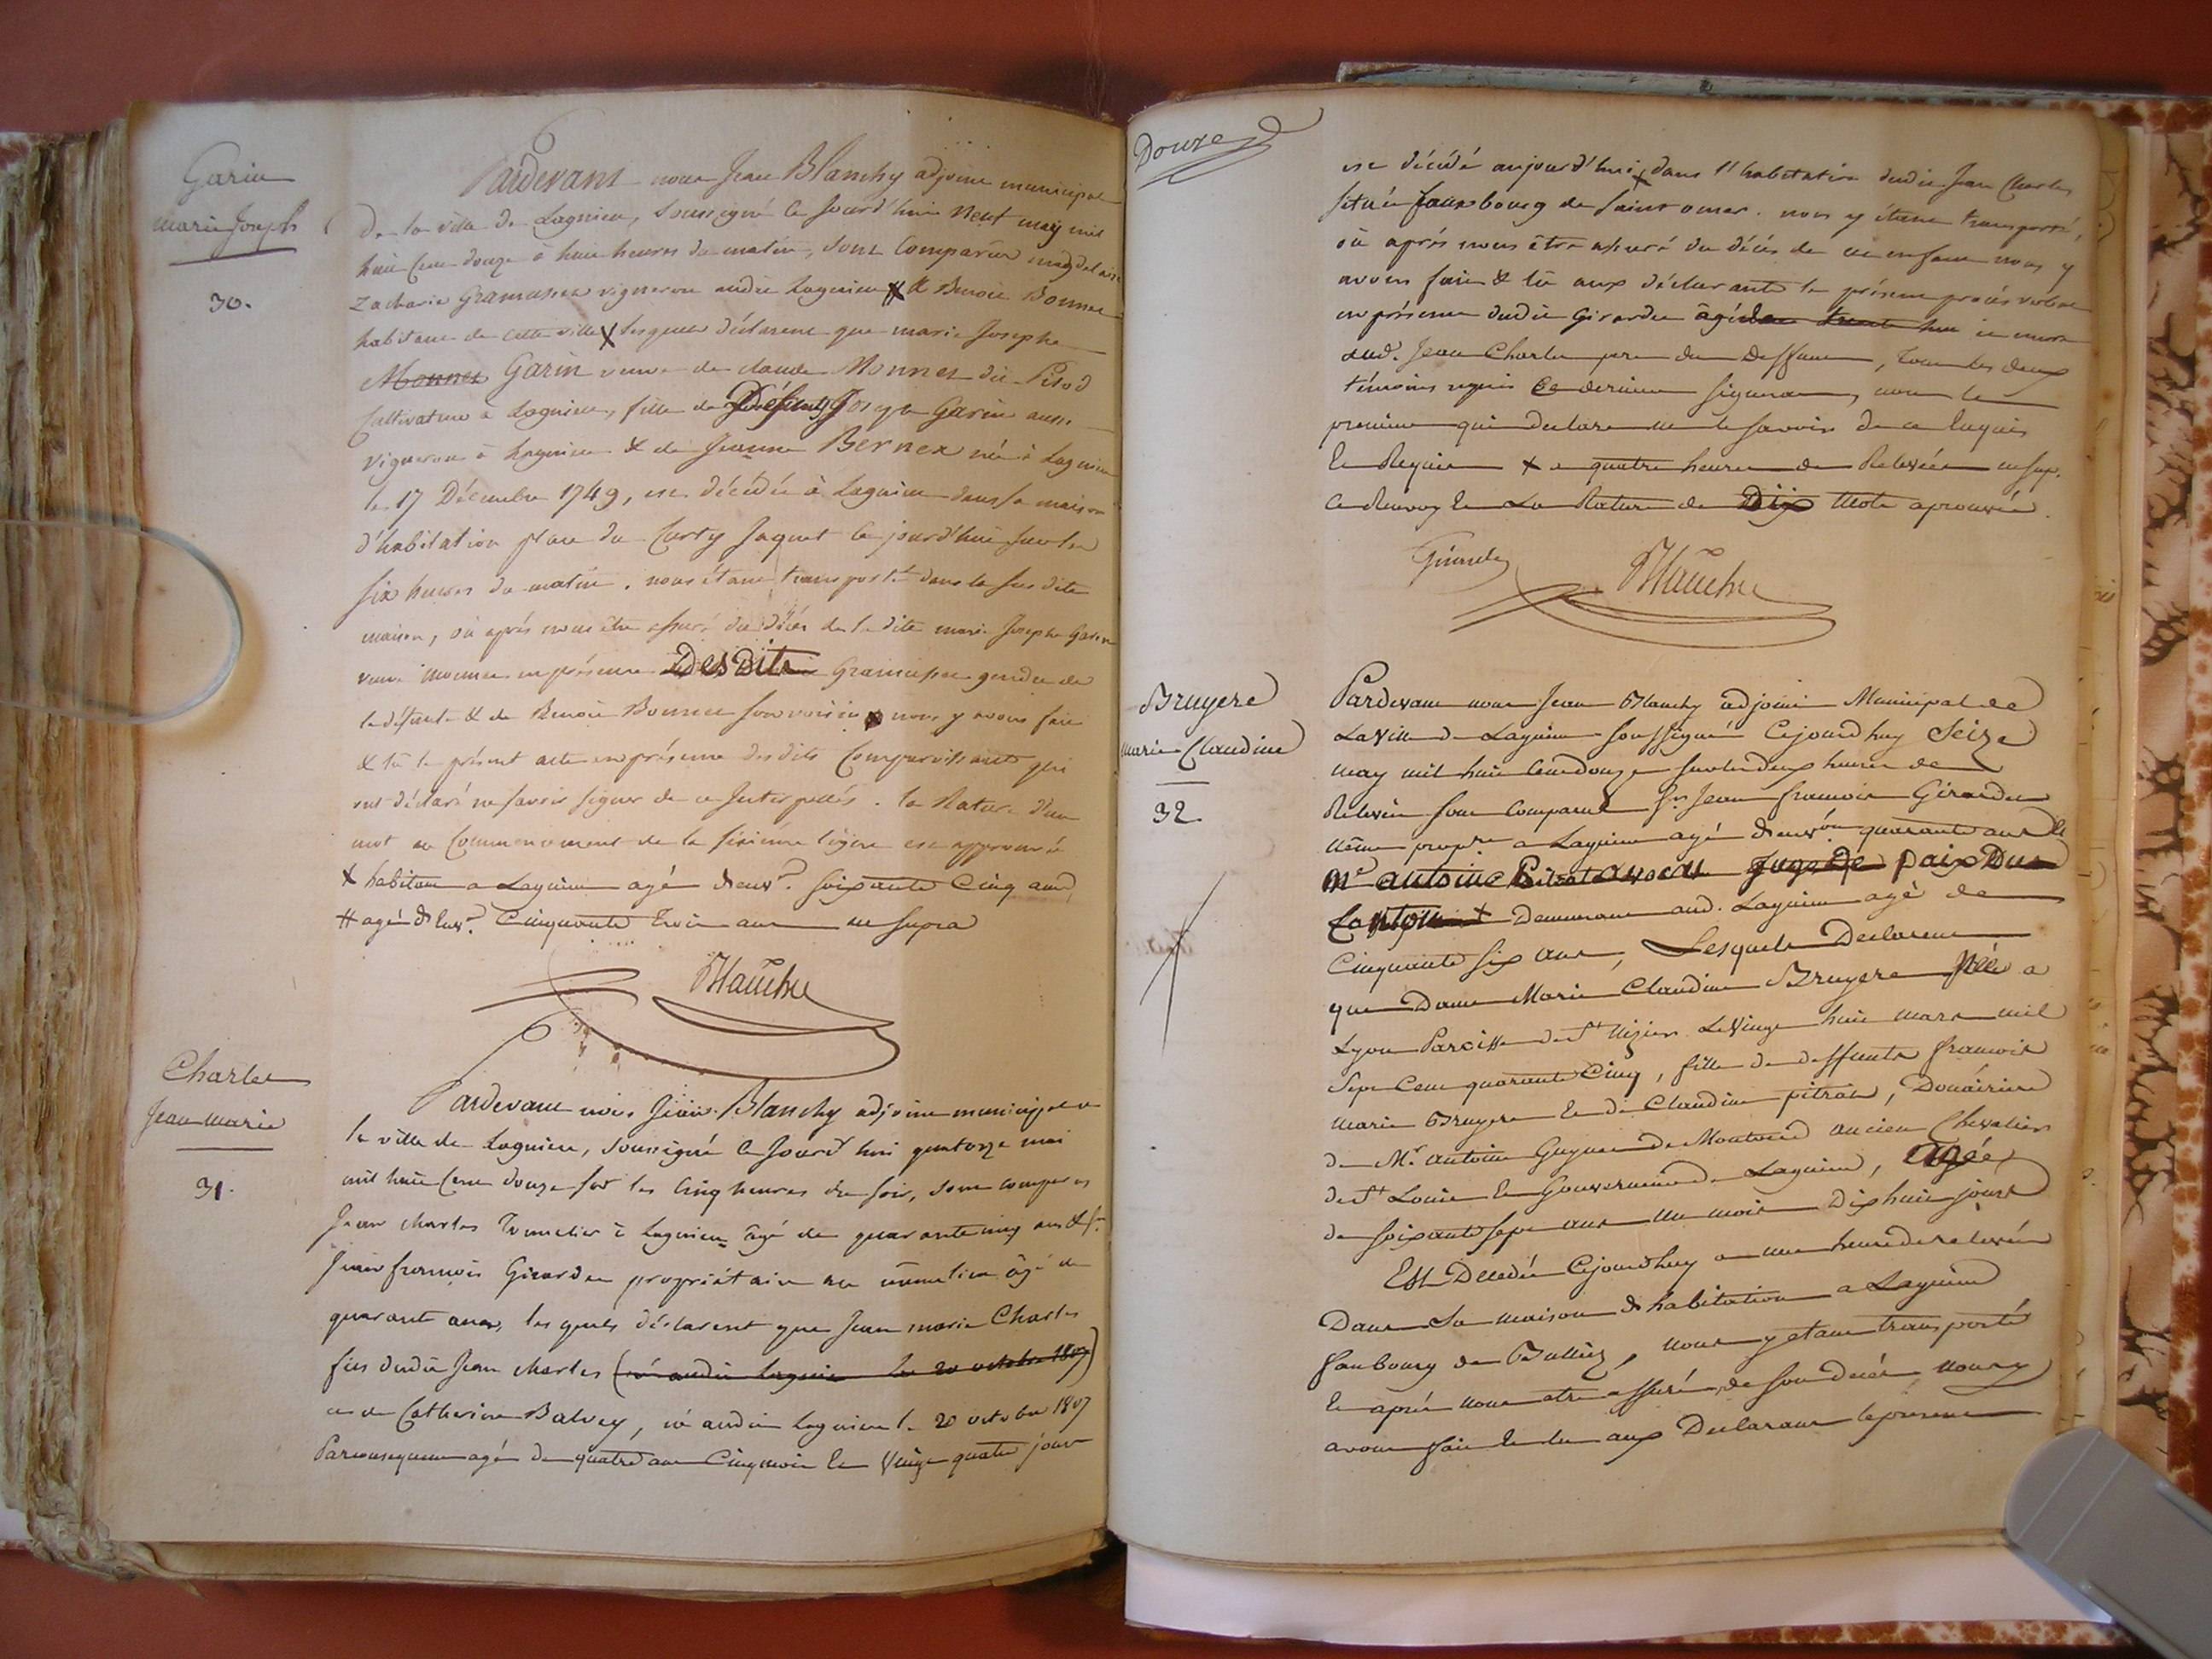 Garin
marie Joseph
30.
Pardevant nous Jean Blanchy adjoint municipal
de la ville de Lagnieu, soussigné ce jourd'hui neuf may mil
huit cent douze à huit heures du matin, sont comparûs magdelaine
Zacharie vigneron audit Lagnieu # & Benoit Bonnet
habitant de cette ville X lesquels déclarent que marie Josephe
Monnet Garin veuve de claude Monnet dit Pisod
cultivateur à Lagnieu, fille de Défunt Joseph Garin aussi
vigneron à Lagnieu & de Jeanne Bernex née à Lagnieu
le 17 Décembre 1749, est décédée à Lagnieu dans sa maison
d'habitation place du Curty Jaquet ce jourd'hui sur les
six heures du matin. nous étant transporté dans la sus dite
maison, où après nous être assuré du décès de la dite marie Josephe Garin
veuve monnet en présence Desdits gendre de
la défunte & de Benoit Bonnet son voisin nous y avons fait
& lû le présent acte en présence des dits Comparoissants qui
ont déclaré ne savoir signer de ce Interpellés. la Rature d'un
mot au Commencement de la sixième ligne est approuvée
X habitant a Lagnieu agé d'envon. soixante Cinq ans
# agé d'Env. Cinquante trois ans ut supra
Blanchy
Charles
Jean marie
31.
Pardevant nous Jean Blanchy adjoint municipal de
la ville de Lagnieu, soussigné ce Jourd'hui quatorze mai
mil huit cent douze sur les cinq heures du soir, sont comparus
Jean Charles Tonnelier à Lagnieu âgé de quarante cinq ans & sr.
Jean françois Girardet propriétaire au même lieu âgé de
quarante ans, lesquels déclarent que Jean marie Charles
fils dudit Jean charles (né audit Lagnieu le 20 octobre 1807)
et de Catherine Balvey, né audit Lagnieu le 20 octobre 1807
Par consequent agé de quatre ans Cinq mois et vingt quatre jours
Douze
est décédé aujourd'hui X dans l'habitation dudit Jean Charles
située fauxbourg de saint omer. nous y étant transporté,
où après nous être assuré du décès de cet enfant nous y
avons fait & lû aux déclarants le présent procès verbal
en présence dudit Girardet âgé de trente huit et encore
dud. Jean Charles pere du Deffunt, tous les deux
témoins requis Ce dernier signera, non le
premier qui Declare ne le savoir de ce Enquis
et Requis X a quatre heures de Relevée ut sup.
Ce Renvoy et La Rature de Dix Mots aprouvée.
Girardet
Blanchy
Bruyere
marie Claudine
32.
Pardevant nous Jean Blanchy adjoint Municipal de
La Ville de Lagnieu soussigné Cejourdhuy Seize
may mil huit Cent douze sur les deux heures de
Relevée sont comparus sr. Jean francois Girardet
même propre a Lagnieu agé d'environ quarante ans et
Mr. antoine Pitrat avocat Juge de paix Du
Canton X Demeurant aud. Lagnieu agé de
Cinquante six ans, Lesquels Declarent
que Dame Marie Claudine Bruyere Née a
Lyon Paroisse de St. Nizier Le Vingt huit mars mil
Sept Cent quarante Cinq, fille de deffunts francois
marie Bruyere et de Claudine pitrat, Douairiere
de Mr. antoine Guynet de Montverd ancien Chevalier
de St. Louis et Gouverneur de Lagnieu, agée
de soixante sept ans un mois Dix huit jours
Est Decedée Cejourdhuy a une heure de relevée
Dans Sa maison d'habitation a Lagnieu
fauxbourg de Bulliez, nous y etant transporté
et après nous etre assuré de son decés nous y
avons fait et lu aux Declarans le present